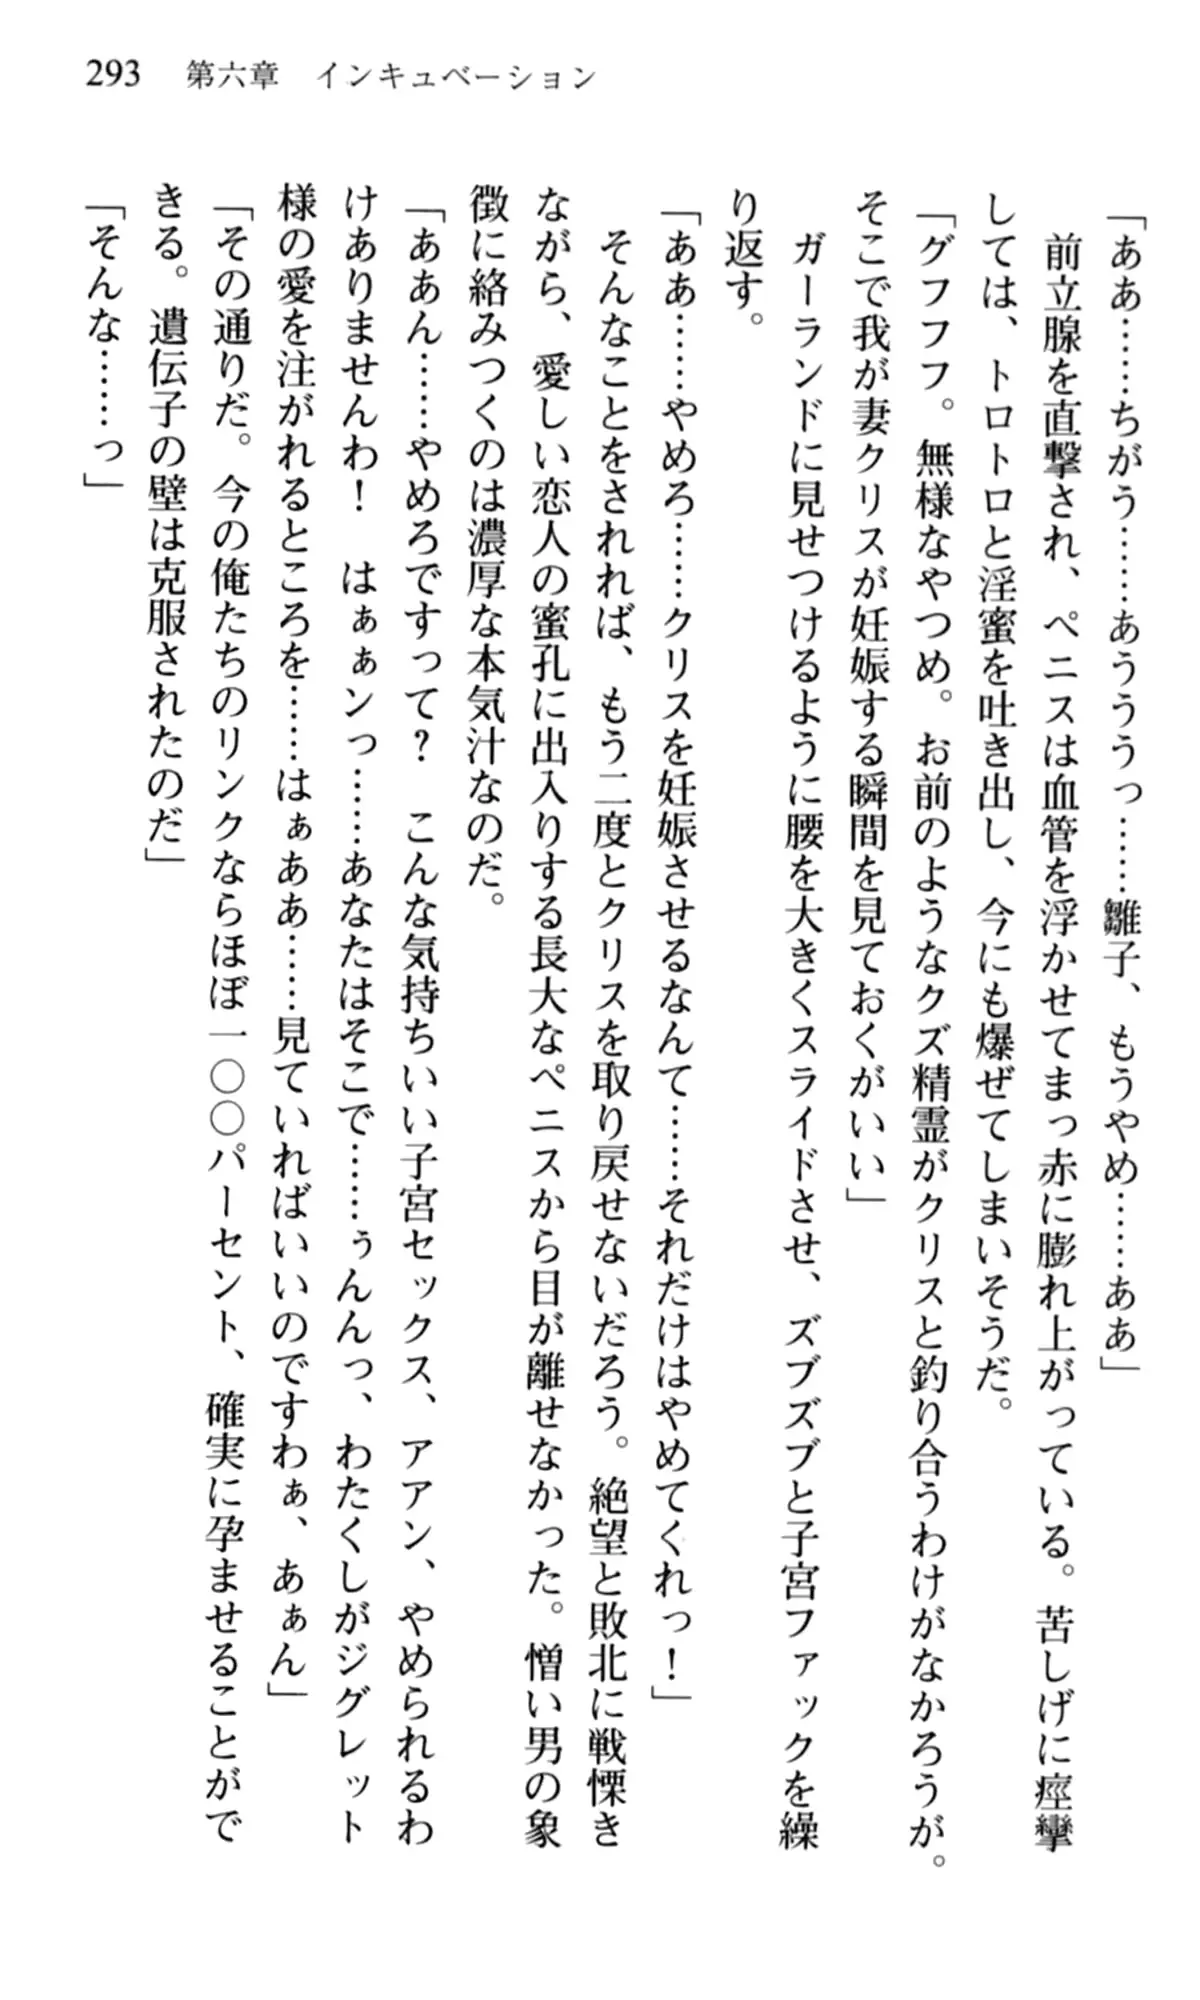 293 第六章 インキュベーション
「ああ……ちがう……あううっ……雛子、もうやめ……ああ」
　前立腺を直撃され、ペニスは血管を浮かせてまっ赤に膨れ上がっている。苦しげに痙攣
しては、トロトロと淫蜜を吐き出し、今にも爆ぜてしまいそうだ。
「グフフフ。無様なやつめ。お前のようなクズ精霊がクリスと釣り合うわけがなかろうが。
そこで我が妻クリスが妊娠する瞬間を見ておくがいい」
　ガーランドに見せつけるように腰を大きくスライドさせ、ズブズブと子宮ファックを繰
り返す。
「ああ……やめろ……クリスを妊娠させるなんて……それだけはやめてくれっ！」
　そんなことをされれば、もう二度とクリスを取り戻せないだろう。絶望と敗北に戦慄き
ながら、愛しい恋人の蜜孔に出入りする長大なペニスから目が離せなかった。憎い男の象
徴に絡みつくのは濃厚な本気汁なのだ。
「ああん……やめろですって？　こんな気持ちいい子宮セックス、アアン、やめられるわ
けありませんわ！　はぁぁンっ……あなたはそこで……ぅんんっ、わたくしがジグレット
様の愛を注がれるところを……はぁああ……見ていればいいのですわぁ、あぁん」
「その通りだ。今の俺たちのリンクならほぼ一〇〇パーセント、確実に孕ませることがで
きる。遺伝子の壁は克服されたのだ」
「そんな……っ」